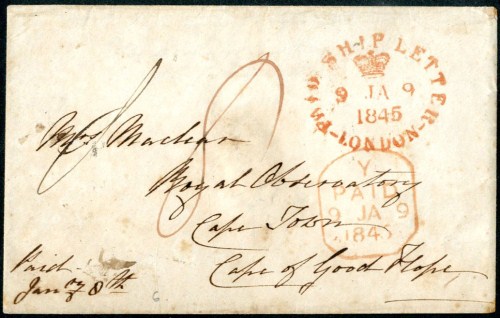 PAID SHIP LETTER
9 JA 9
1845
LONDON
Mrs Maclear
Royal Observatory
Cape Town
Cape of Good Hope
Y
PAID
9 JA 9
1845
Paid
Jany 8th
8